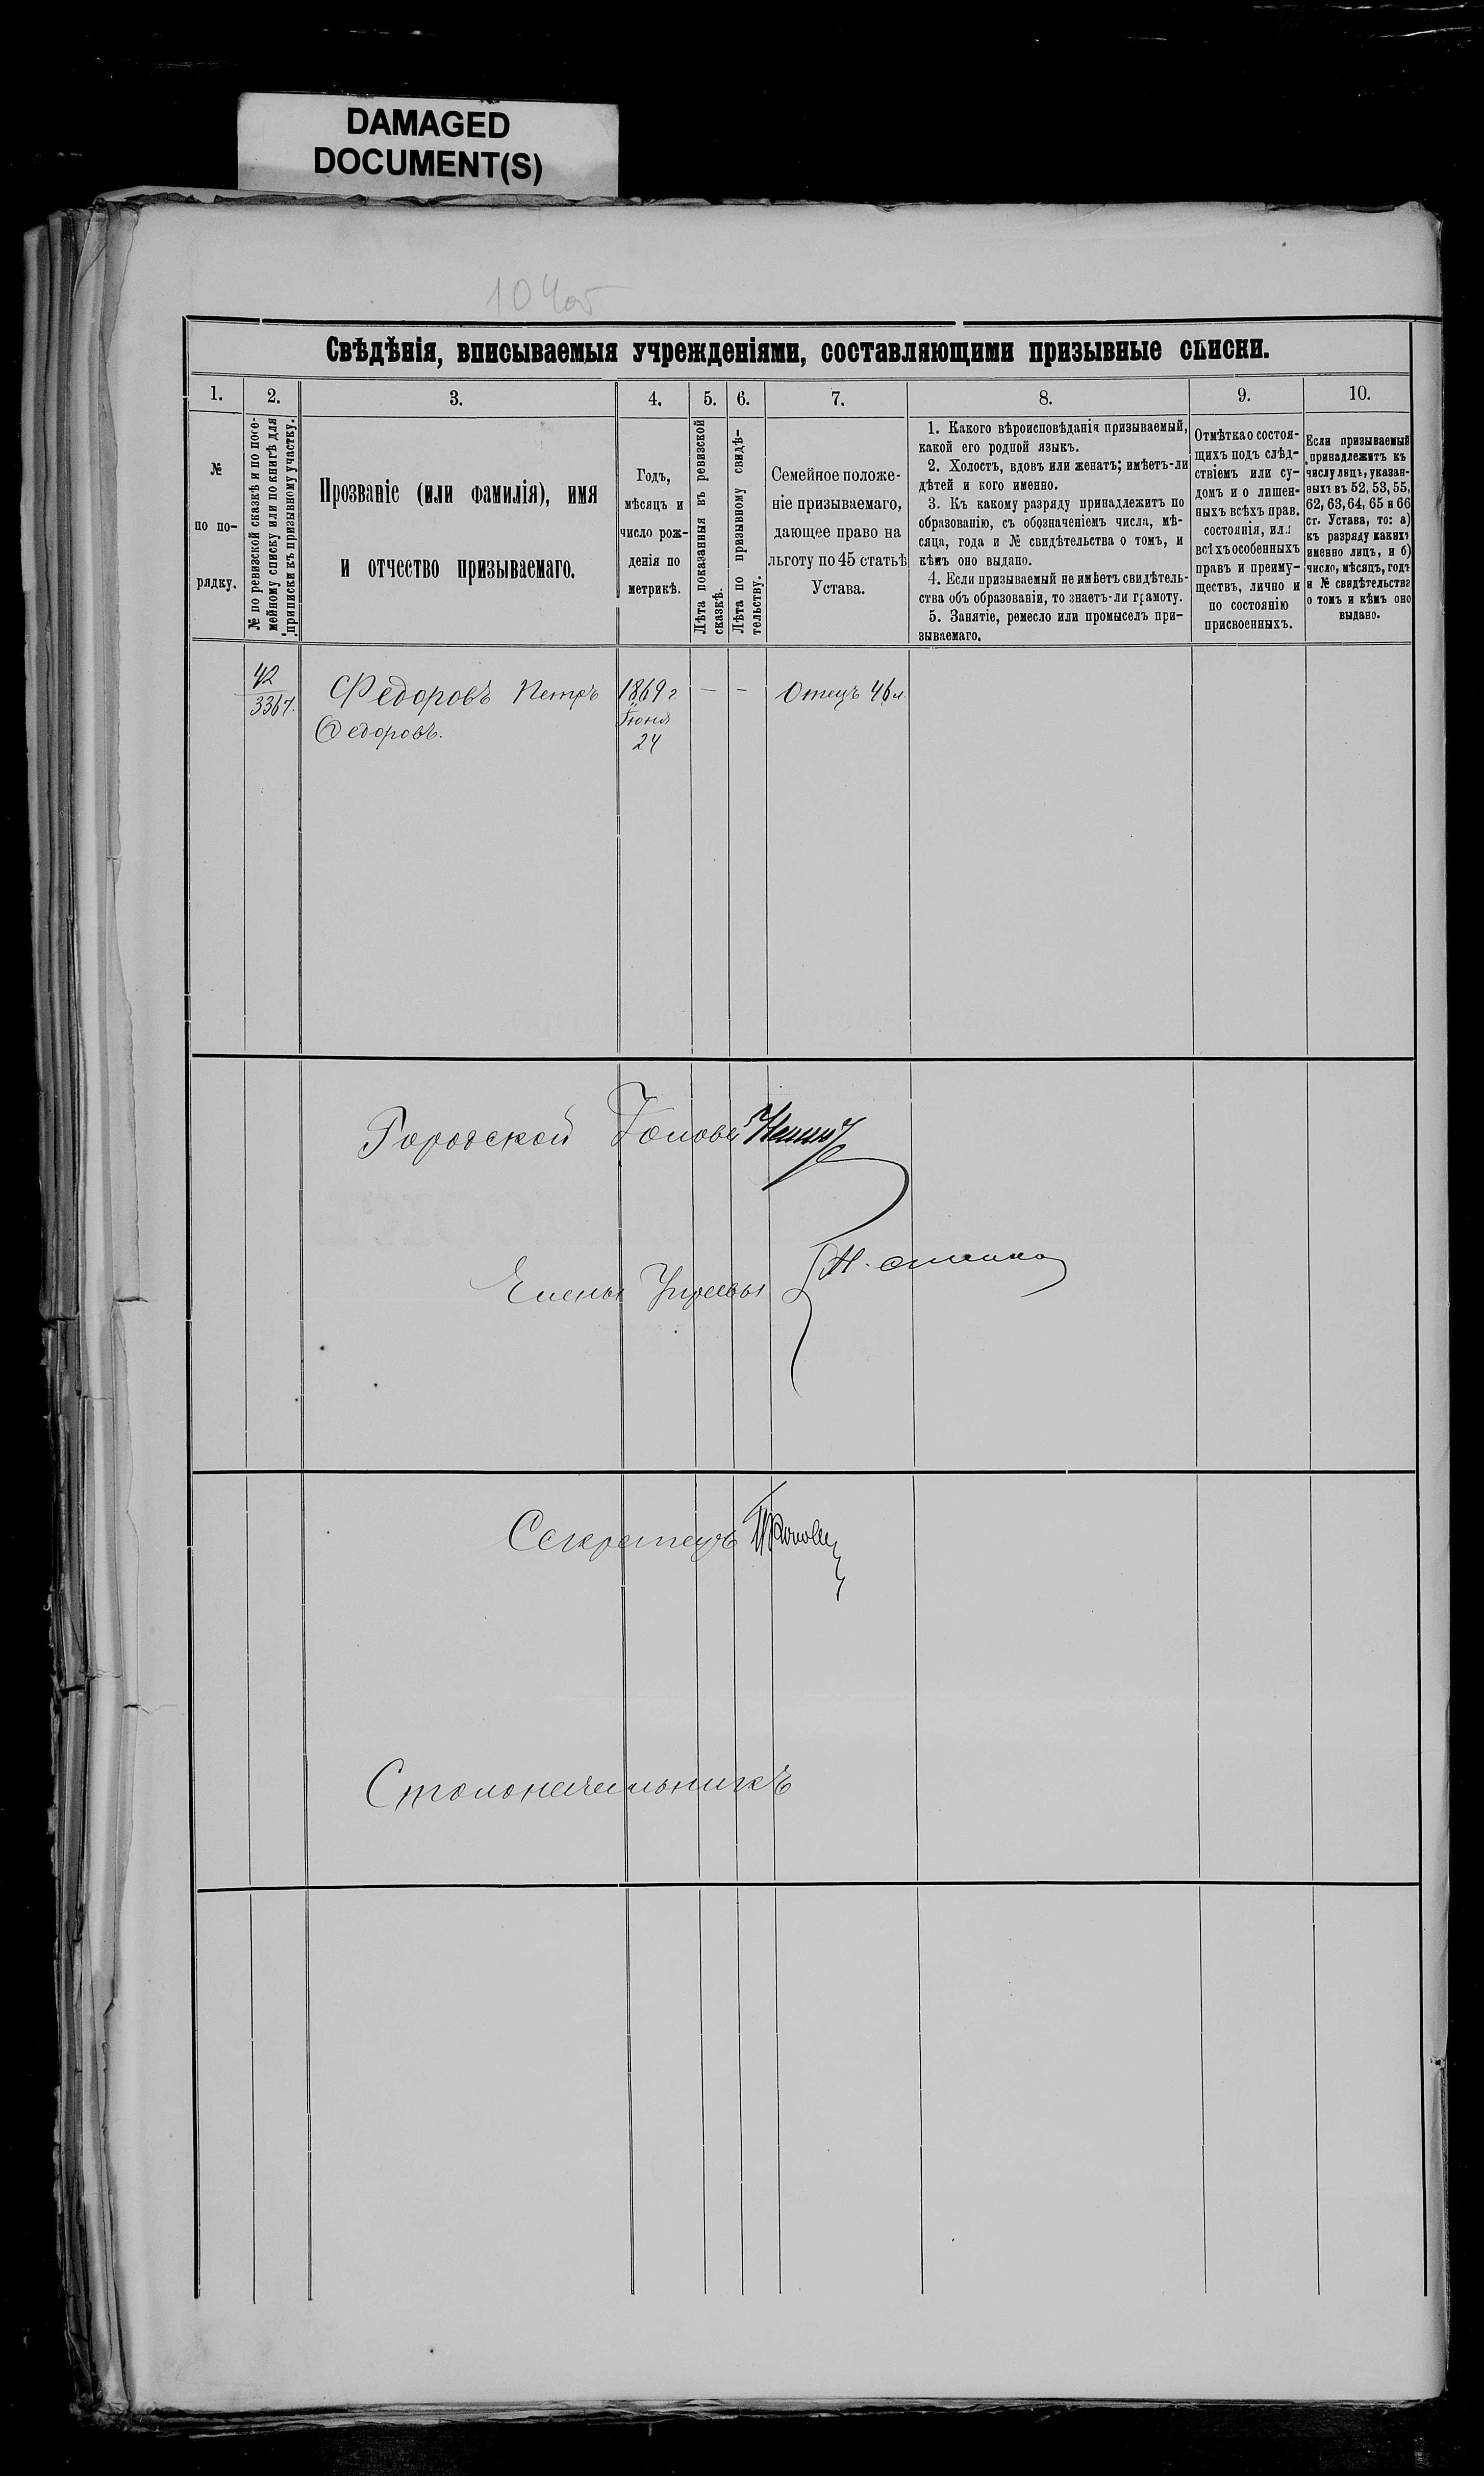 DAMAGED
DOCUMENT(S)
104об
Свѣдѣнія, вписываемыя учрежденіями, составляющими призывные списки.
1.
2.
3.
4.
5.
6.
7.
8.
9.
10.
№
по по-
рядку.
№ по ревизской сказкѣ и по посе-
мейному списку или по книгѣ для
приписки къ призывному участку.
Прозваніе (или фамилія), имя
и отчество призываемаго.
Годъ,
мѣсяцъ и
число рож-
денія по
метрикѣ.
Лѣта показанныя въ ревизской
сказкѣ.
Лѣта по призывному свидѣ-
тельству.
Семейное положе-
ніе призываемаго,
дающее право на
льготу по 45 статьѣ
Устава.
1. Какого вѣроисповѣданія призываемый,
какой его родной языкъ.
2. Холостъ, вдовъ или женатъ; имѣетъ-ли
дѣтей и кого именно.
3. Къ какому разряду принадлежитъ по
образованію, съ обозначеніемъ числа, мѣ-
сяца, года и № свидѣтельства о томъ, и
кѣмъ оно выдано.
4. Если призываемый не имѣетъ свидѣтель-
ства объ образованіи, то знаетъ-ли грамоту.
5. Занятіе, ремесло или промыселъ при-
зываемаго.
Отмѣтка о состоя-
щихъ подъ слѣд-
ствіемъ или су-
домъ и о лишен-
ныхъ всѣхъ прав.
состоянія, или
всѣхъ особенныхъ
правъ и преиму-
ществъ, лично и
по состоянію
присвоенныхъ.
Если призываемый
принадлежитъ къ
числу лицъ, указан-
ныхъ въ 52, 53, 55,
62, 63, 64, 65 и 66
ст. Устава, то: а)
къ разряду какихъ
именно лицъ, и б)
число, мѣсяцъ, годъ
и № свидѣтельства
о томъ и кѣмъ оно
выдано.
42
3367.
Федоровъ Петръ
Федоровъ.
1869 г
Іюня
24
—
—
Отецъ 46 л.
Городской Голова
Члены Управы
Секретарь
Столоначальникъ